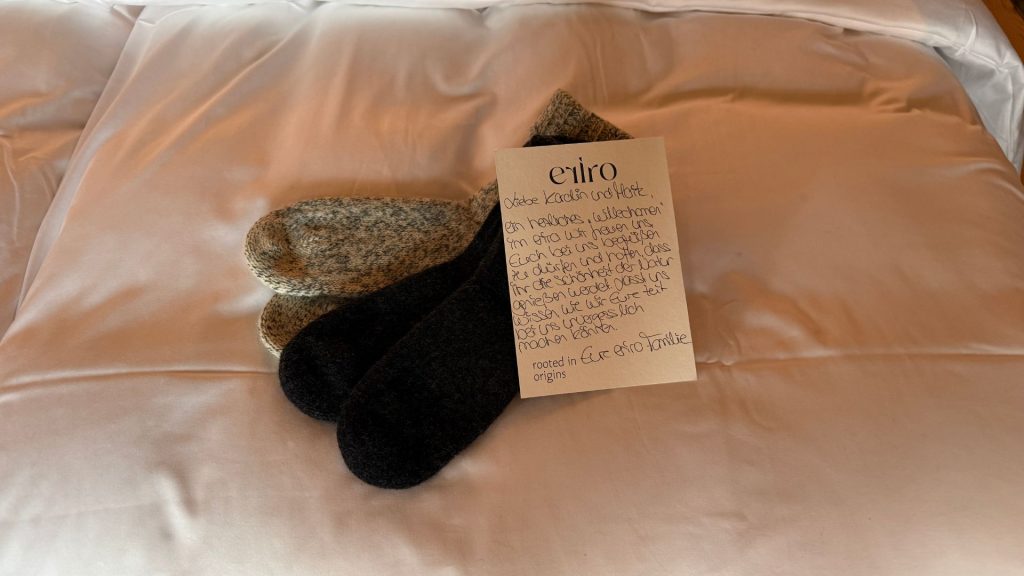 eriro
Liebe Karolin und Malte,
ein herzliches „Willkommen"
im eriro wir freuen uns
Euch bei uns begrüßen
zu dürfen und hoffen, dass
ihr die Schönheit der Natur
genießen werdet. Lasst uns
wissen wie wir Eure Zeit
bei uns unvergesslich
machen können.
Eure eriro Familie
rooted in
origins